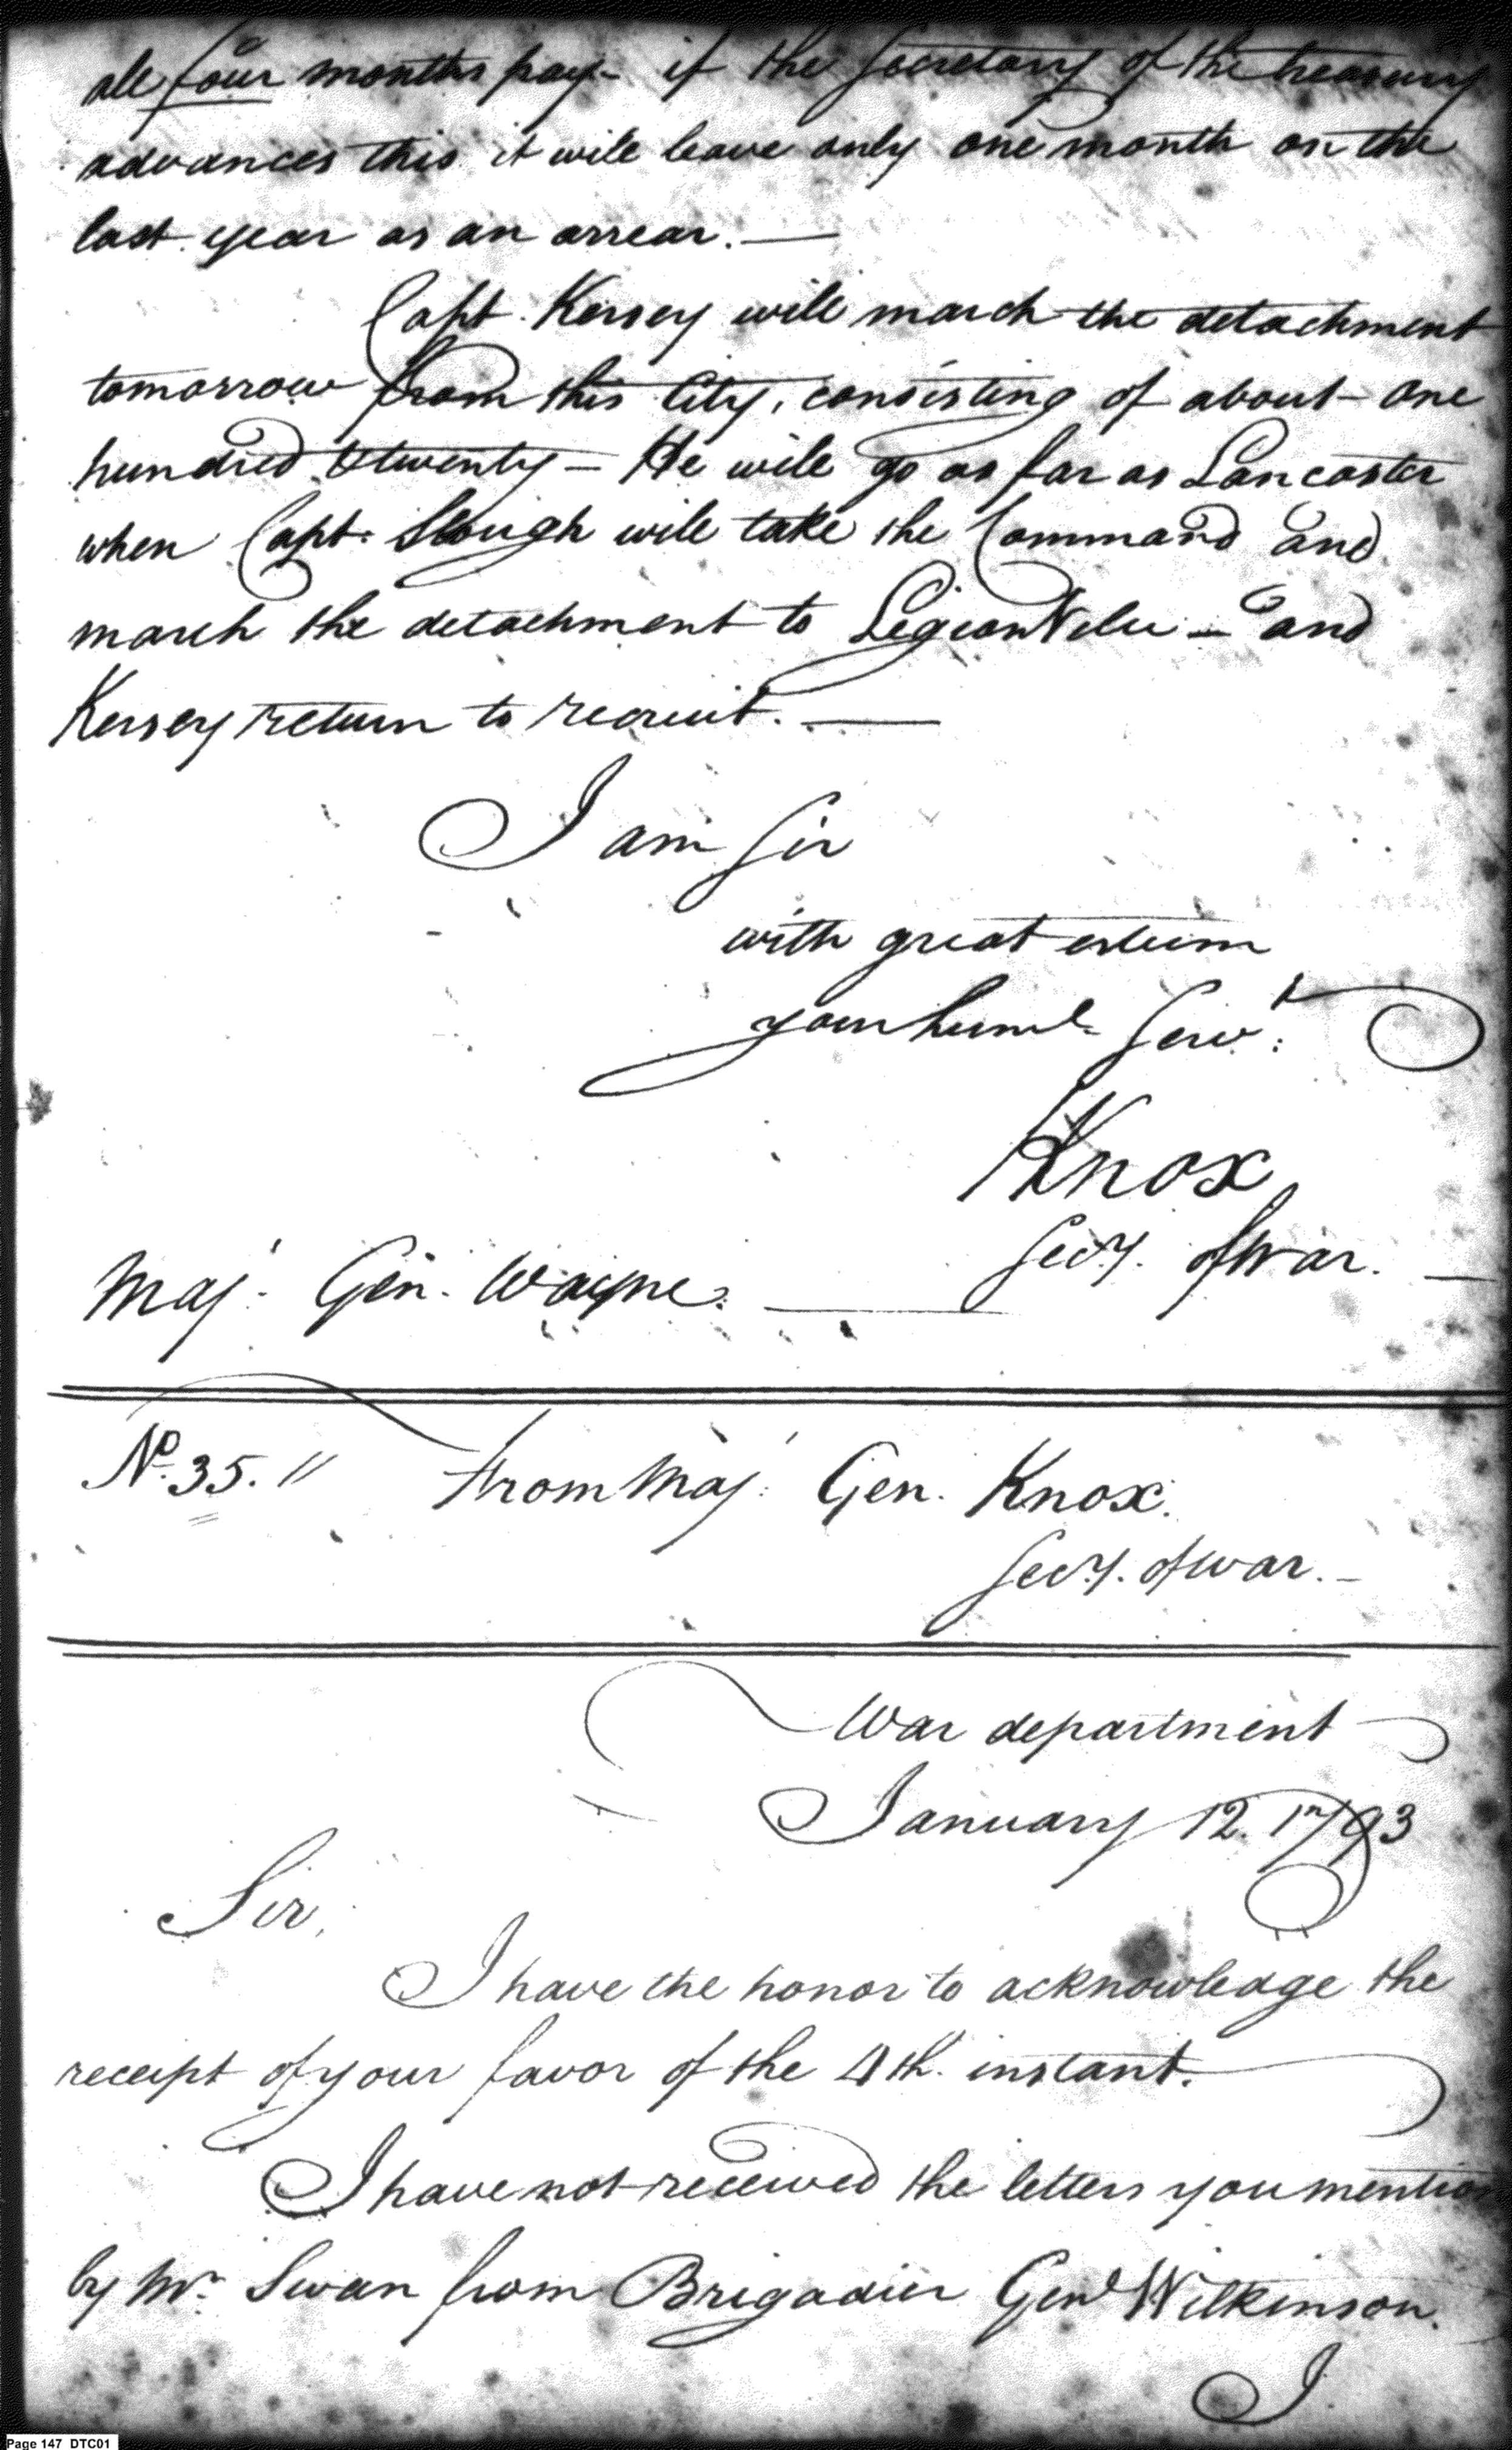 all four months pay - if the Secretary of the treasury
advances this it will leave only one month on the
last year as an arrear. —
Capt. Kersey will march the detachment
tomorrow from this City, consisting of about one
hundred & twenty — He will go as far as Lancaster
when Capt. Slough will take the Command and
march the detachment to Legion Ville — and
Kersey return to recruit. —
I am Sir
with great esteem
your huml. Servt.
Knox
Secy. of War. —
Maj. Gen. Wayne. —
No. 35. // From Maj. Gen. Knox.
Secy. of War. —
War department
January 12. 1793
Sir,
I have the honor to acknowledge the
receipt of your favor of the 4th. instant.
I have not received the letters you mention
by Mr. Swan from Brigadier Genl Wilkinson.
I
Page 147 DTC01